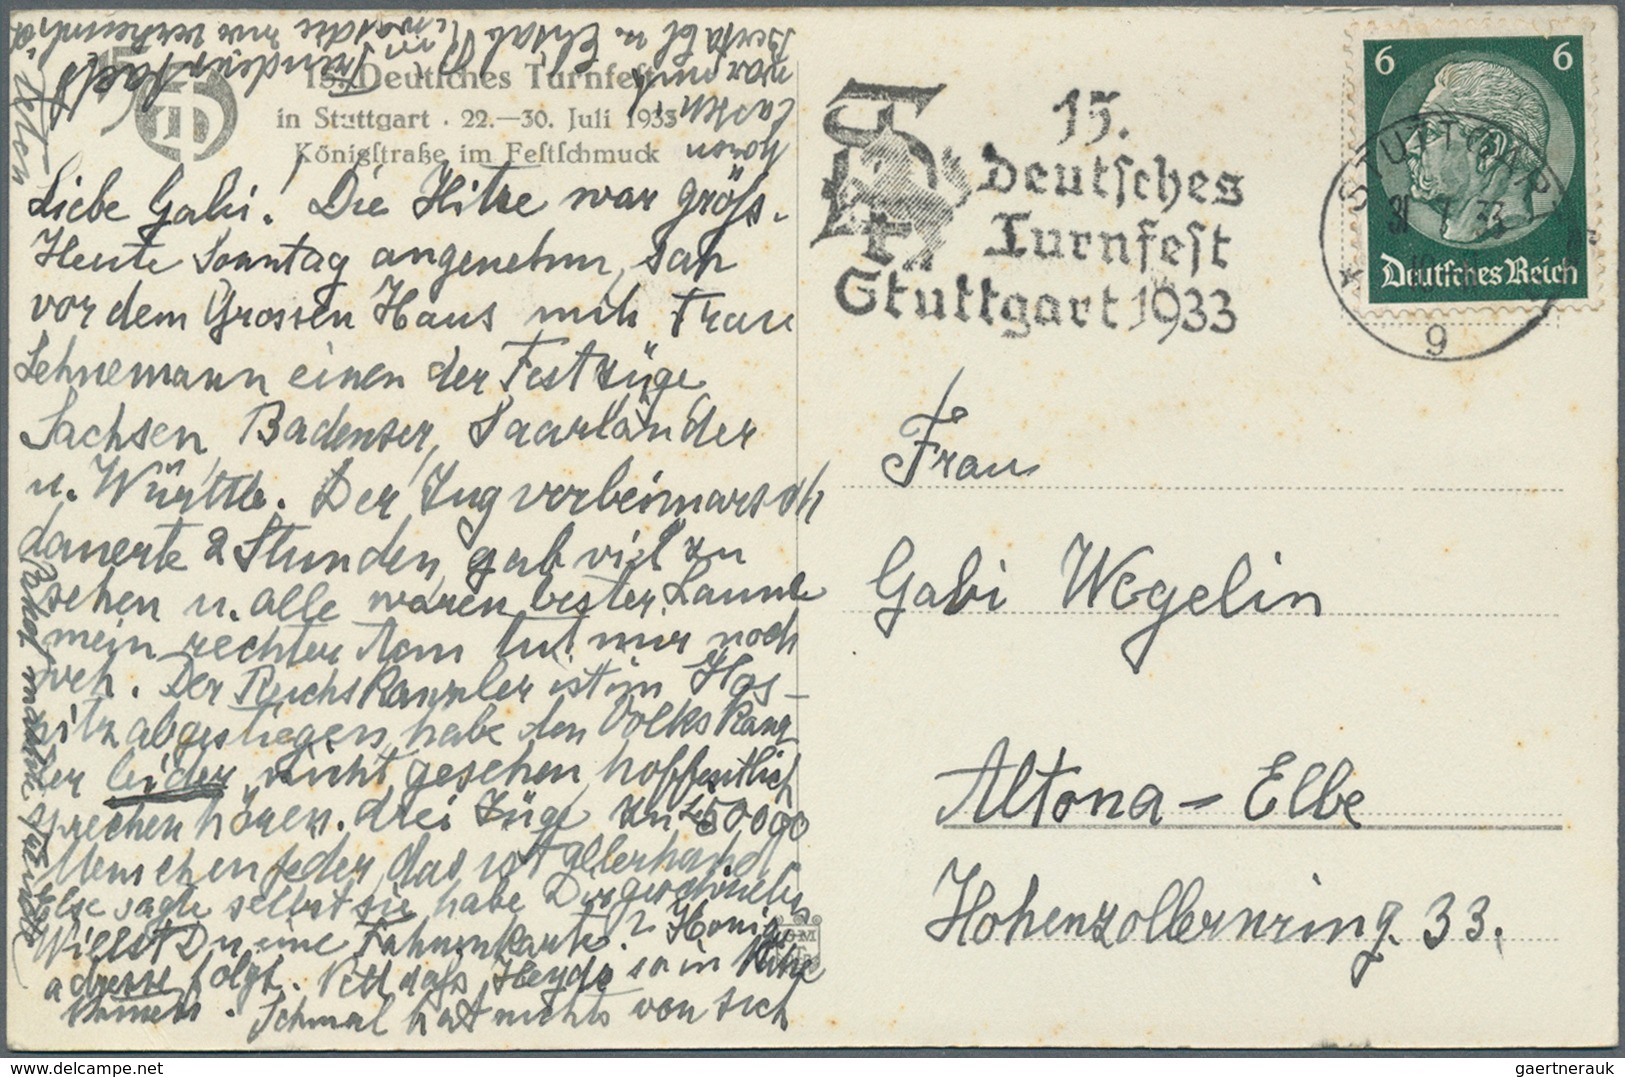 15. Deutſches Turnfeſt
in Stuttgart · 22.—30. Juli 1933
Königſtraße im Feſtſchmuck
Liebe Gabi! Die Hitze war gröss.
Heute Sonntag angenehm, sah
vor dem Grossen Haus mit Frau
Lehnemann einen der Festzüge,
Sachsen, Badenser, Saarländer
u. Württb. Der Zug vorbeimarsch
dauerte 2 Stunden, gab viel zu
sehen u. alle waren bester Laune
mein rechter Arm tut mir noch
weh. Der Reichskanzler ist im
abgestiegen, habe den Volkskanz
ler leider nicht gesehen, hoffentlich
sprechen hören. drei Züge zu 50000
Menschen jeder, das ist allerhand,
Else sagte selbst sie habe Dir geschrieben
Willst Du eine Fahnenkarte? Honig
adresse folgt. daß so in
Schmal hat nichts von sich
hören
lassen,
war mit
15.
Deutſches
Turnfeſt
Stuttgart 1933
6 6
Deutſches Reich
STUTTGART
31 7 33
9
Frau
Gabi Wegelin
Altona - Elbe
Hohenzollernring. 33.
delcampe.net
gaertnerauk